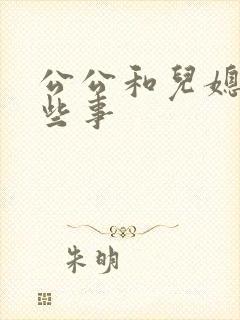 公公和兒媳
些事
朱明